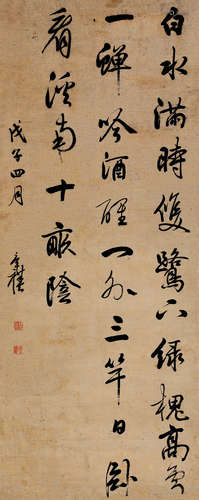 白水滿時雙鷺下綠槐高處
一蟬吟酒醒門外三竿日臥
看溪南十畝陰
戊子四月